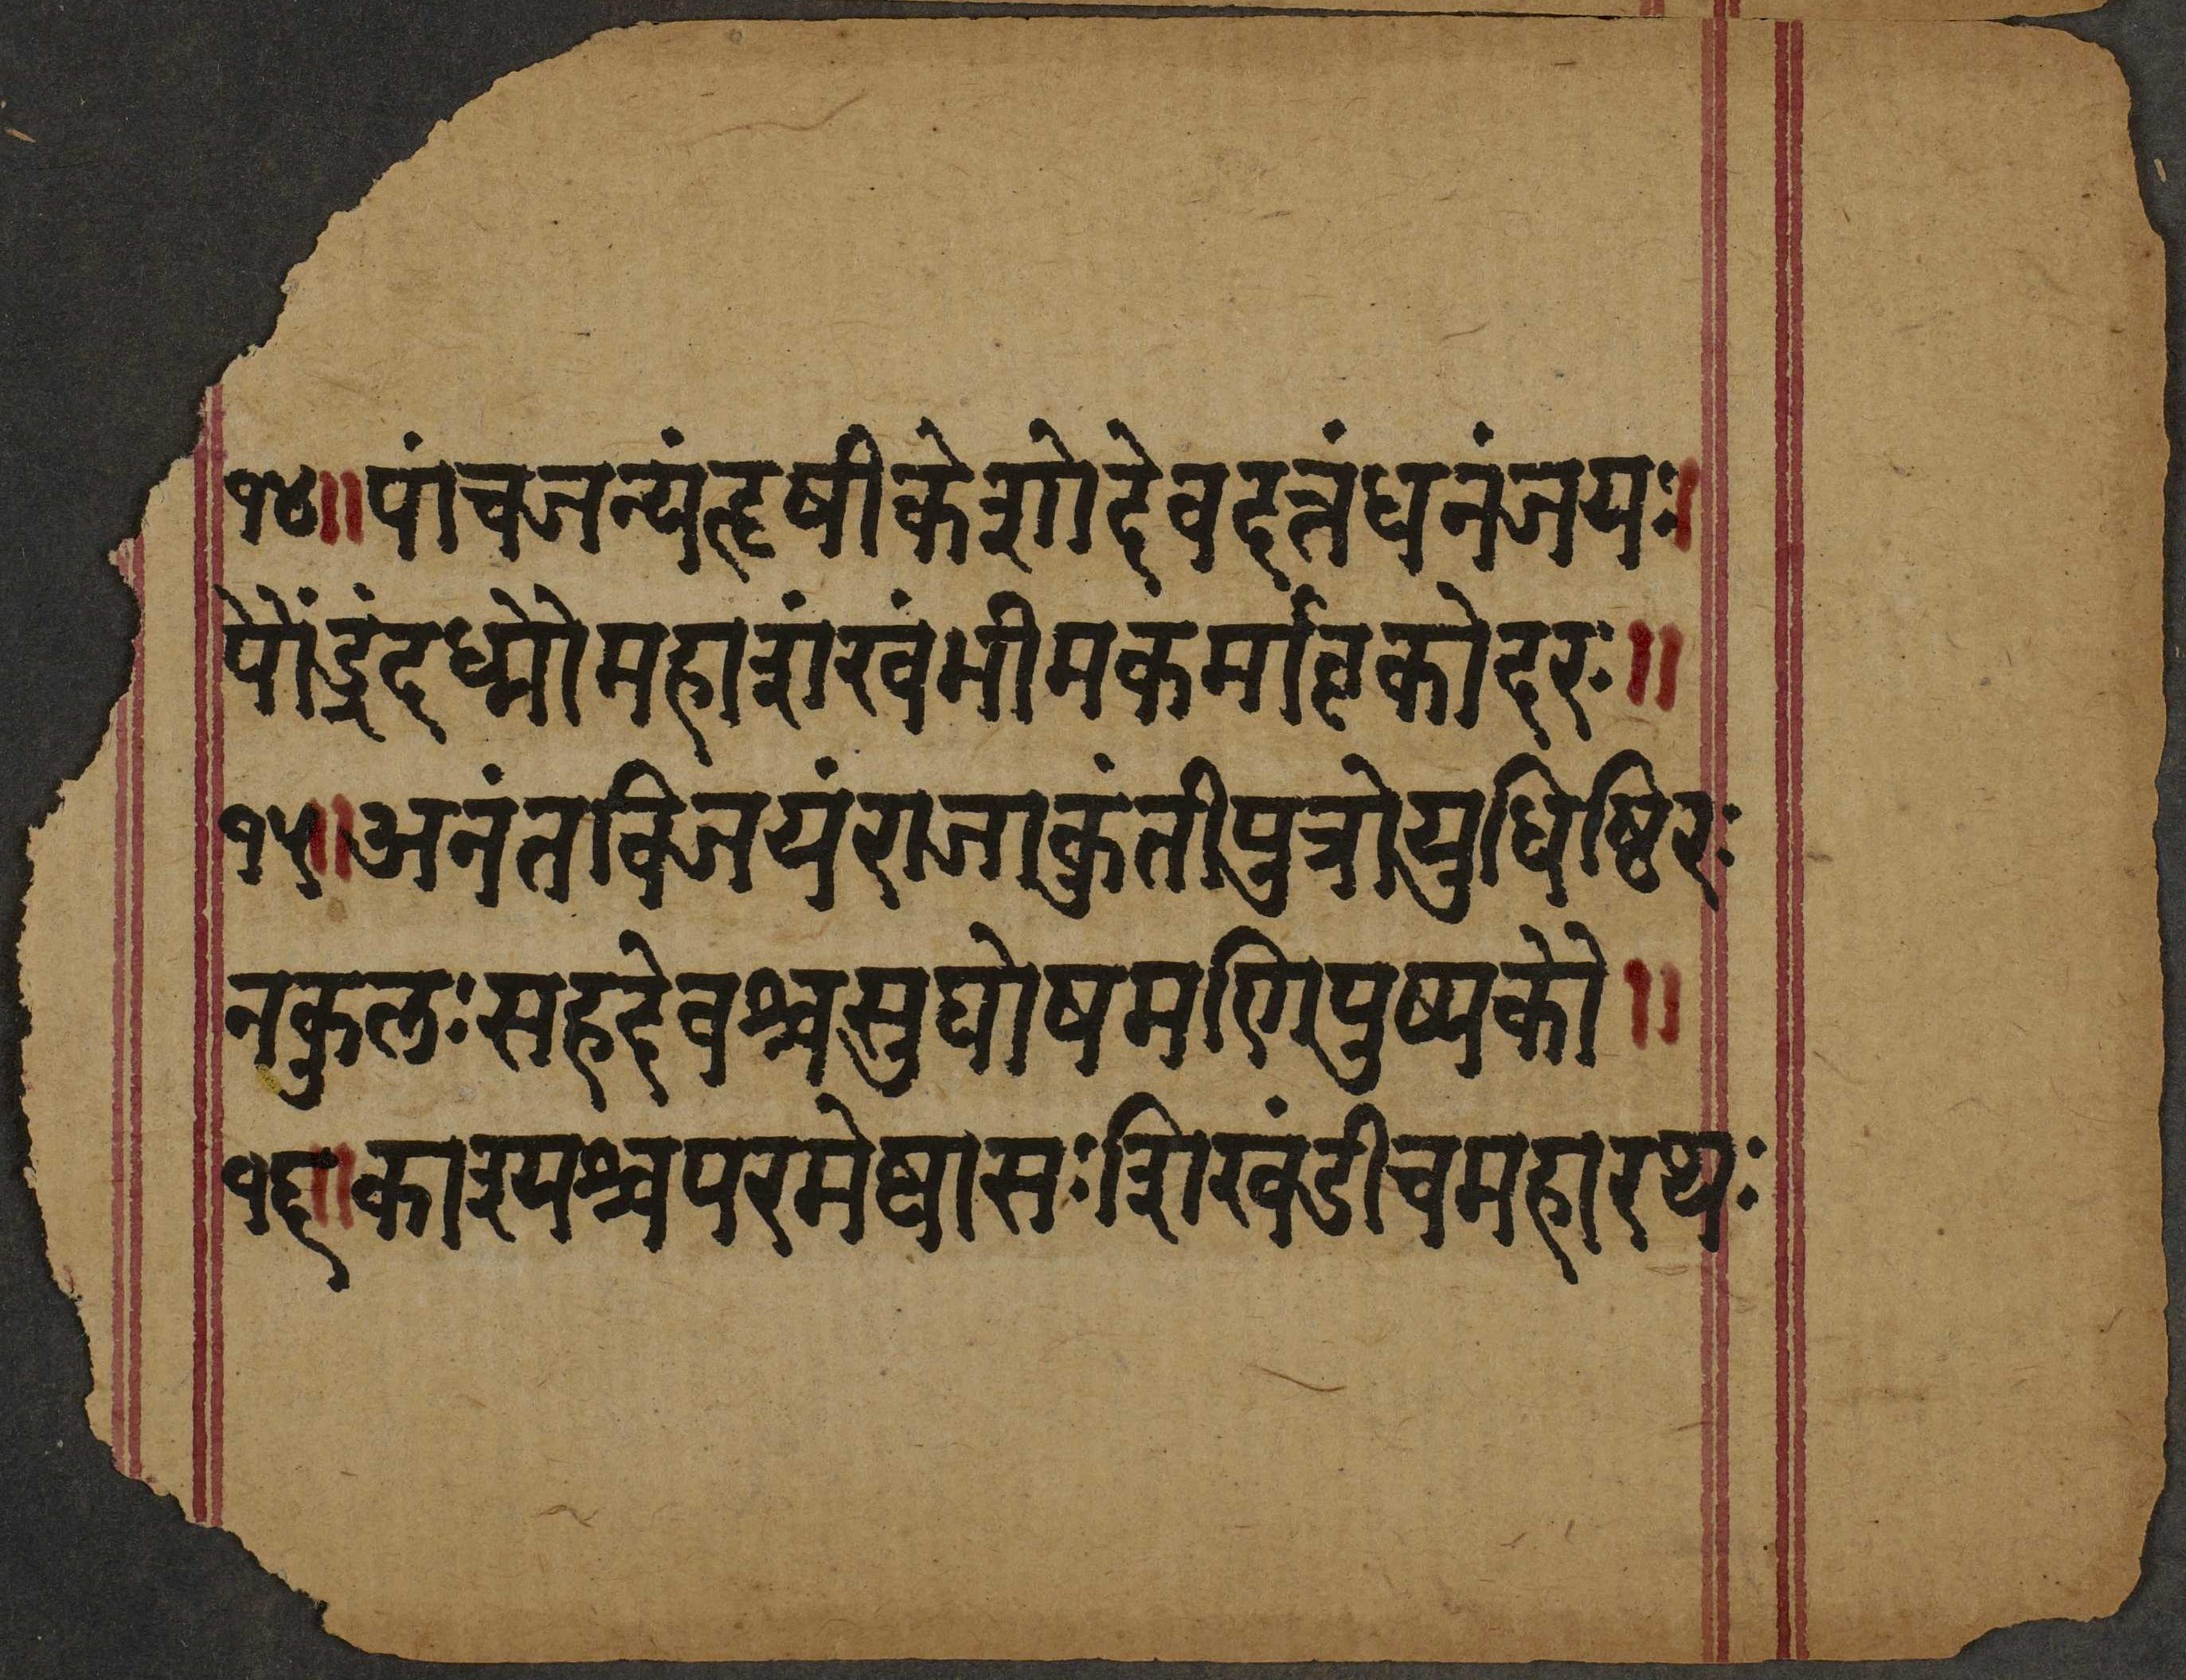 १४॥पांचजन्यंहृषीकेशोदेवदत्तंधनंजयः।
पौंड्रंदध्मौमहाशंखंभीमकर्मावृकोदरः॥
१५॥अनंतविजयंराजाकुंतीपुत्रोयुधिष्ठिरः
नकुलःसहदेवश्चसुघोषमणिपुष्पकौ॥
१६॥काश्यश्चपरमेष्वासःशिखंडीचमहारथः